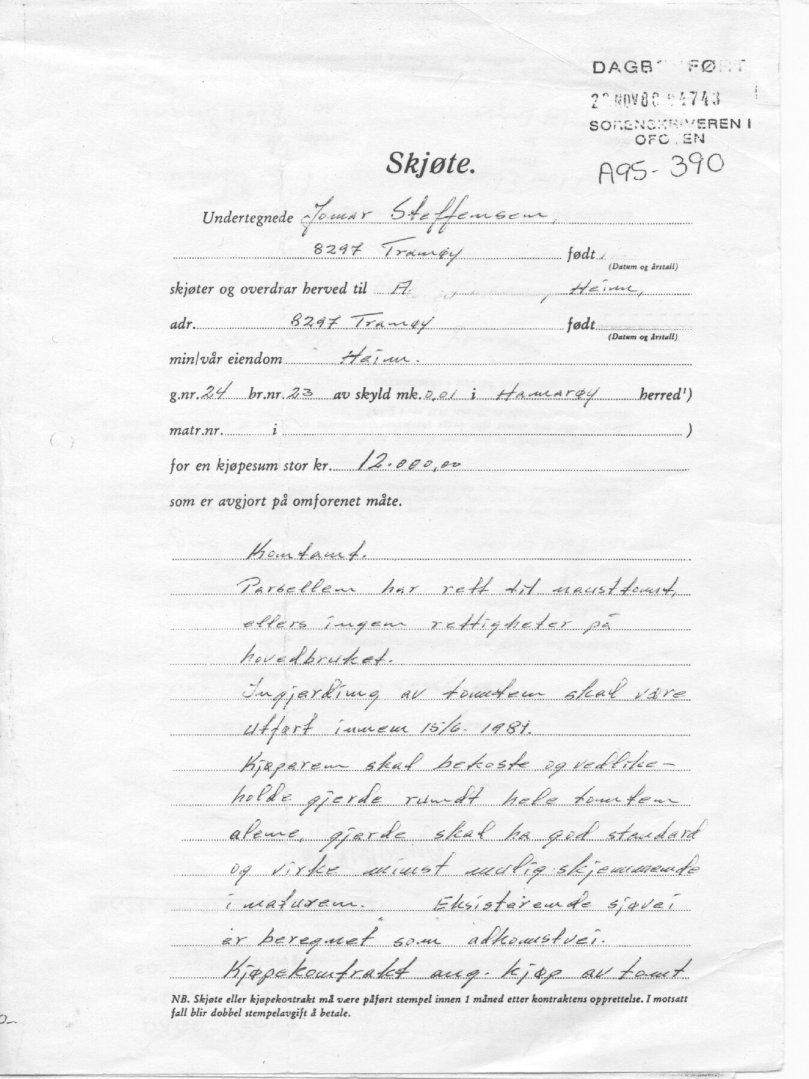 DAGB FØRT
NOV 80 04743
SORENSKRIVEREN I
OFOTEN
A95-390
Skjøte.
Undertegnede Jomar Steffensen,
8297 Tranøy født
(Datum og årstall)
skjøter og overdrar herved til A. Heim,
adr. 8297 Tranøy født
(Datum og årstall)
min/vår eiendom Heim.
g.nr. 24 br.nr. 23 av skyld mk. 0,01 i Hamarøy herred¹)
matr.nr. i )
for en kjøpesum stor kr. 12.000,00
som er avgjort på omforenet måte.
Kontant.
Parsellen har rett til nausttomt,
ellers ingen rettigheter på
hovedbruket.
Ingjerding av tomten skal være
utført innen 15/6- 1981.
Kjøparen skal bekoste og vedlike-
holde gjerde rundt hele tomten
alene, gjerde skal ha god standard
og virke minst mulig skjemmende
i naturen. Eksisterende sjøvei
er beregnet som adkomstvei.
Kjøpekontrakt ang. kjøp av tomt
NB. Skjøte eller kjøpekontrakt må være påført stempel innen 1 måned etter kontraktens opprettelse. I motsatt
fall blir dobbel stempelavgift å betale.